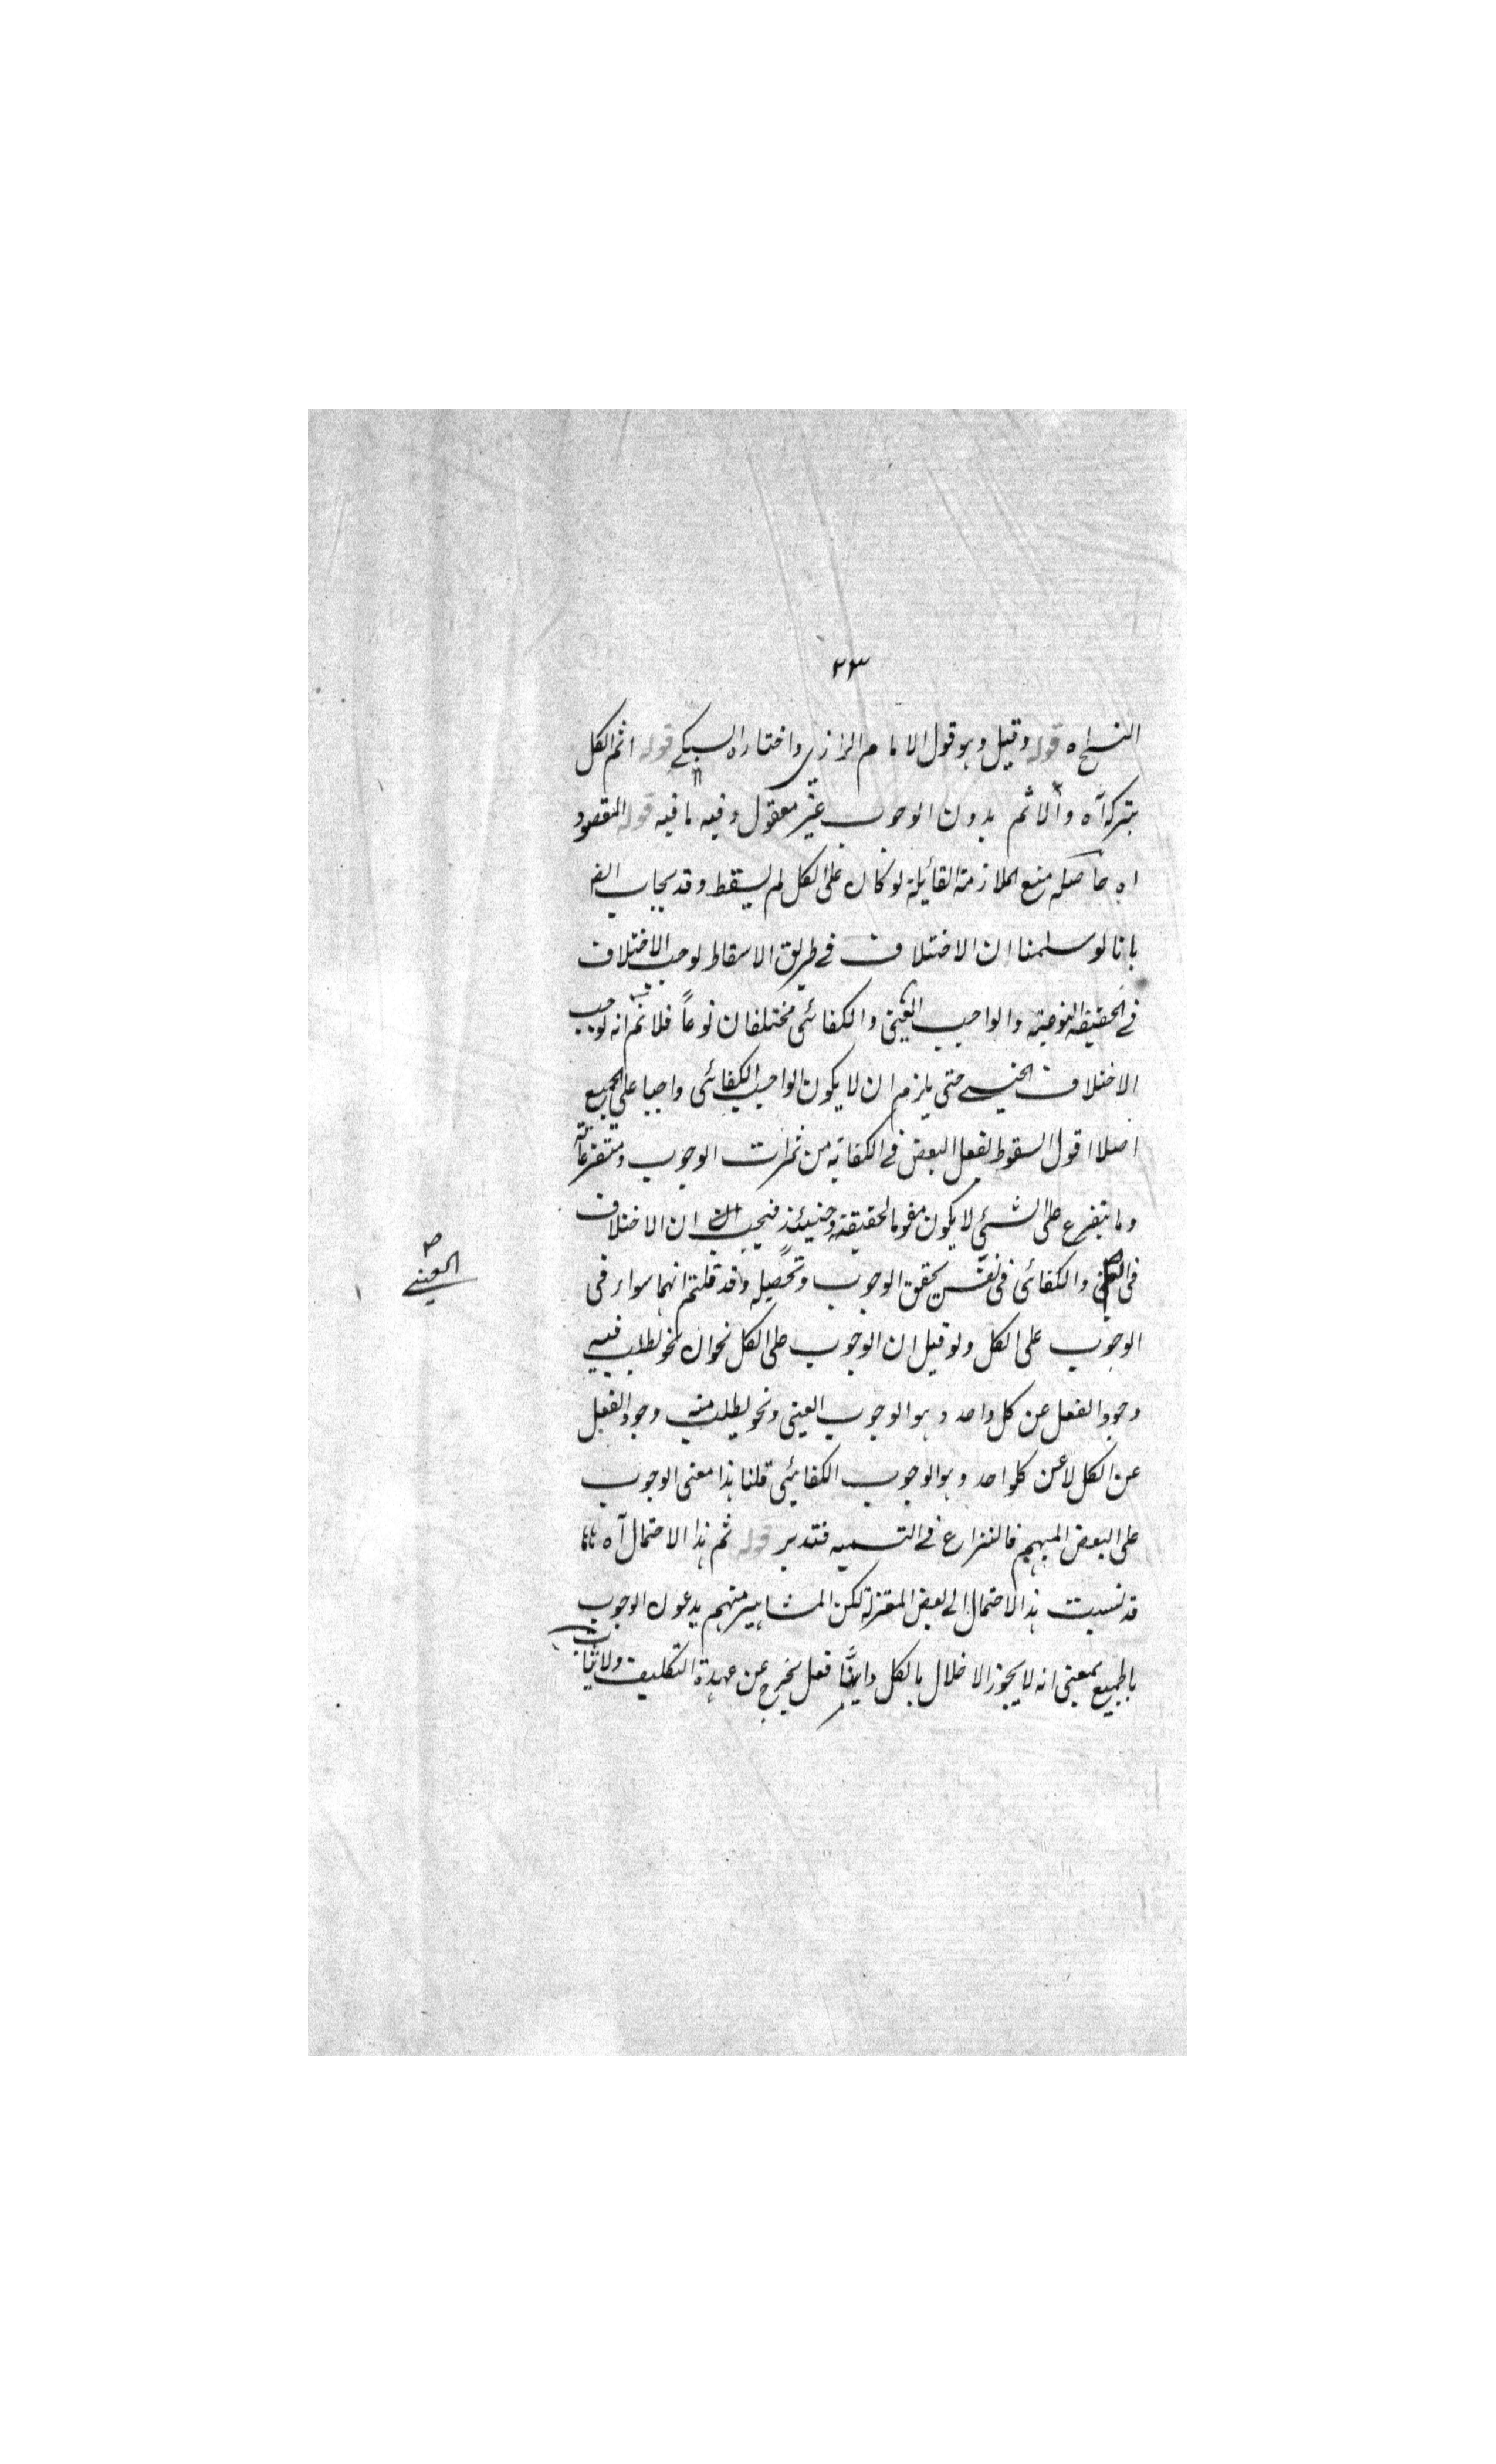 ٢٣
النسخ اه قوله وقيل وهو قول الامام الرازى واختاره السبكے قوله اثم الكل
بتركه آه والاثم بدون الوجوب غير معقول وفيه ما فيه قوله المقصود
اه حاصله منع الملازمة القائلة لو كان على الكل لم يسقط وقد يجاب ايض
بانا لو سلمنا ان الاختلاف فے طريق الاسقاط يوجب الاختلاف
فے الحقيقة النوعية والواجب العينى والكفائى مختلفان نوعاً فلانم انه يوجب
الاختلاف الجنسے حتى يلزم ان لا يكون الواجب الكفائى واجبا على الجميع
اصلا اقول السقوط بفعل البعض فے الكفاية من ثمرات الوجوب ومتفرعاته
وما يتفرع على الشئى لا يكون مقوما لحقيقته وحينئذٍ فيجب ان الاختلاف
فى والكفائى فى نفس تحقق الوجوب وتحصيله وقد قلتم انهما سواء فى
العينے
الوجوب على الكل ولو قيل ان الوجوب على الكل نحوان نحو يطلب فيه
وجود الفعل عن كل واحد وهو الوجوب العينى ونحو يطلب منه وجود الفعل
عن الكل لا عن كلواحد وهو الوجوب الكفائى قلنا هذا معنى الوجوب
على البعض المبهم فالنزاع فے التسميه فتدبر قوله ثم هذا الاحتمال آه
قد نسبت هذا الاحتمال الى بعض المعتزلة لكن المشاهير منهم يدعون الوجوب
بالجميع بمعنى انه لا يجوز الاخلال بالكل وايها فعل يخرج عن عهدة التكليف ولا يثاب